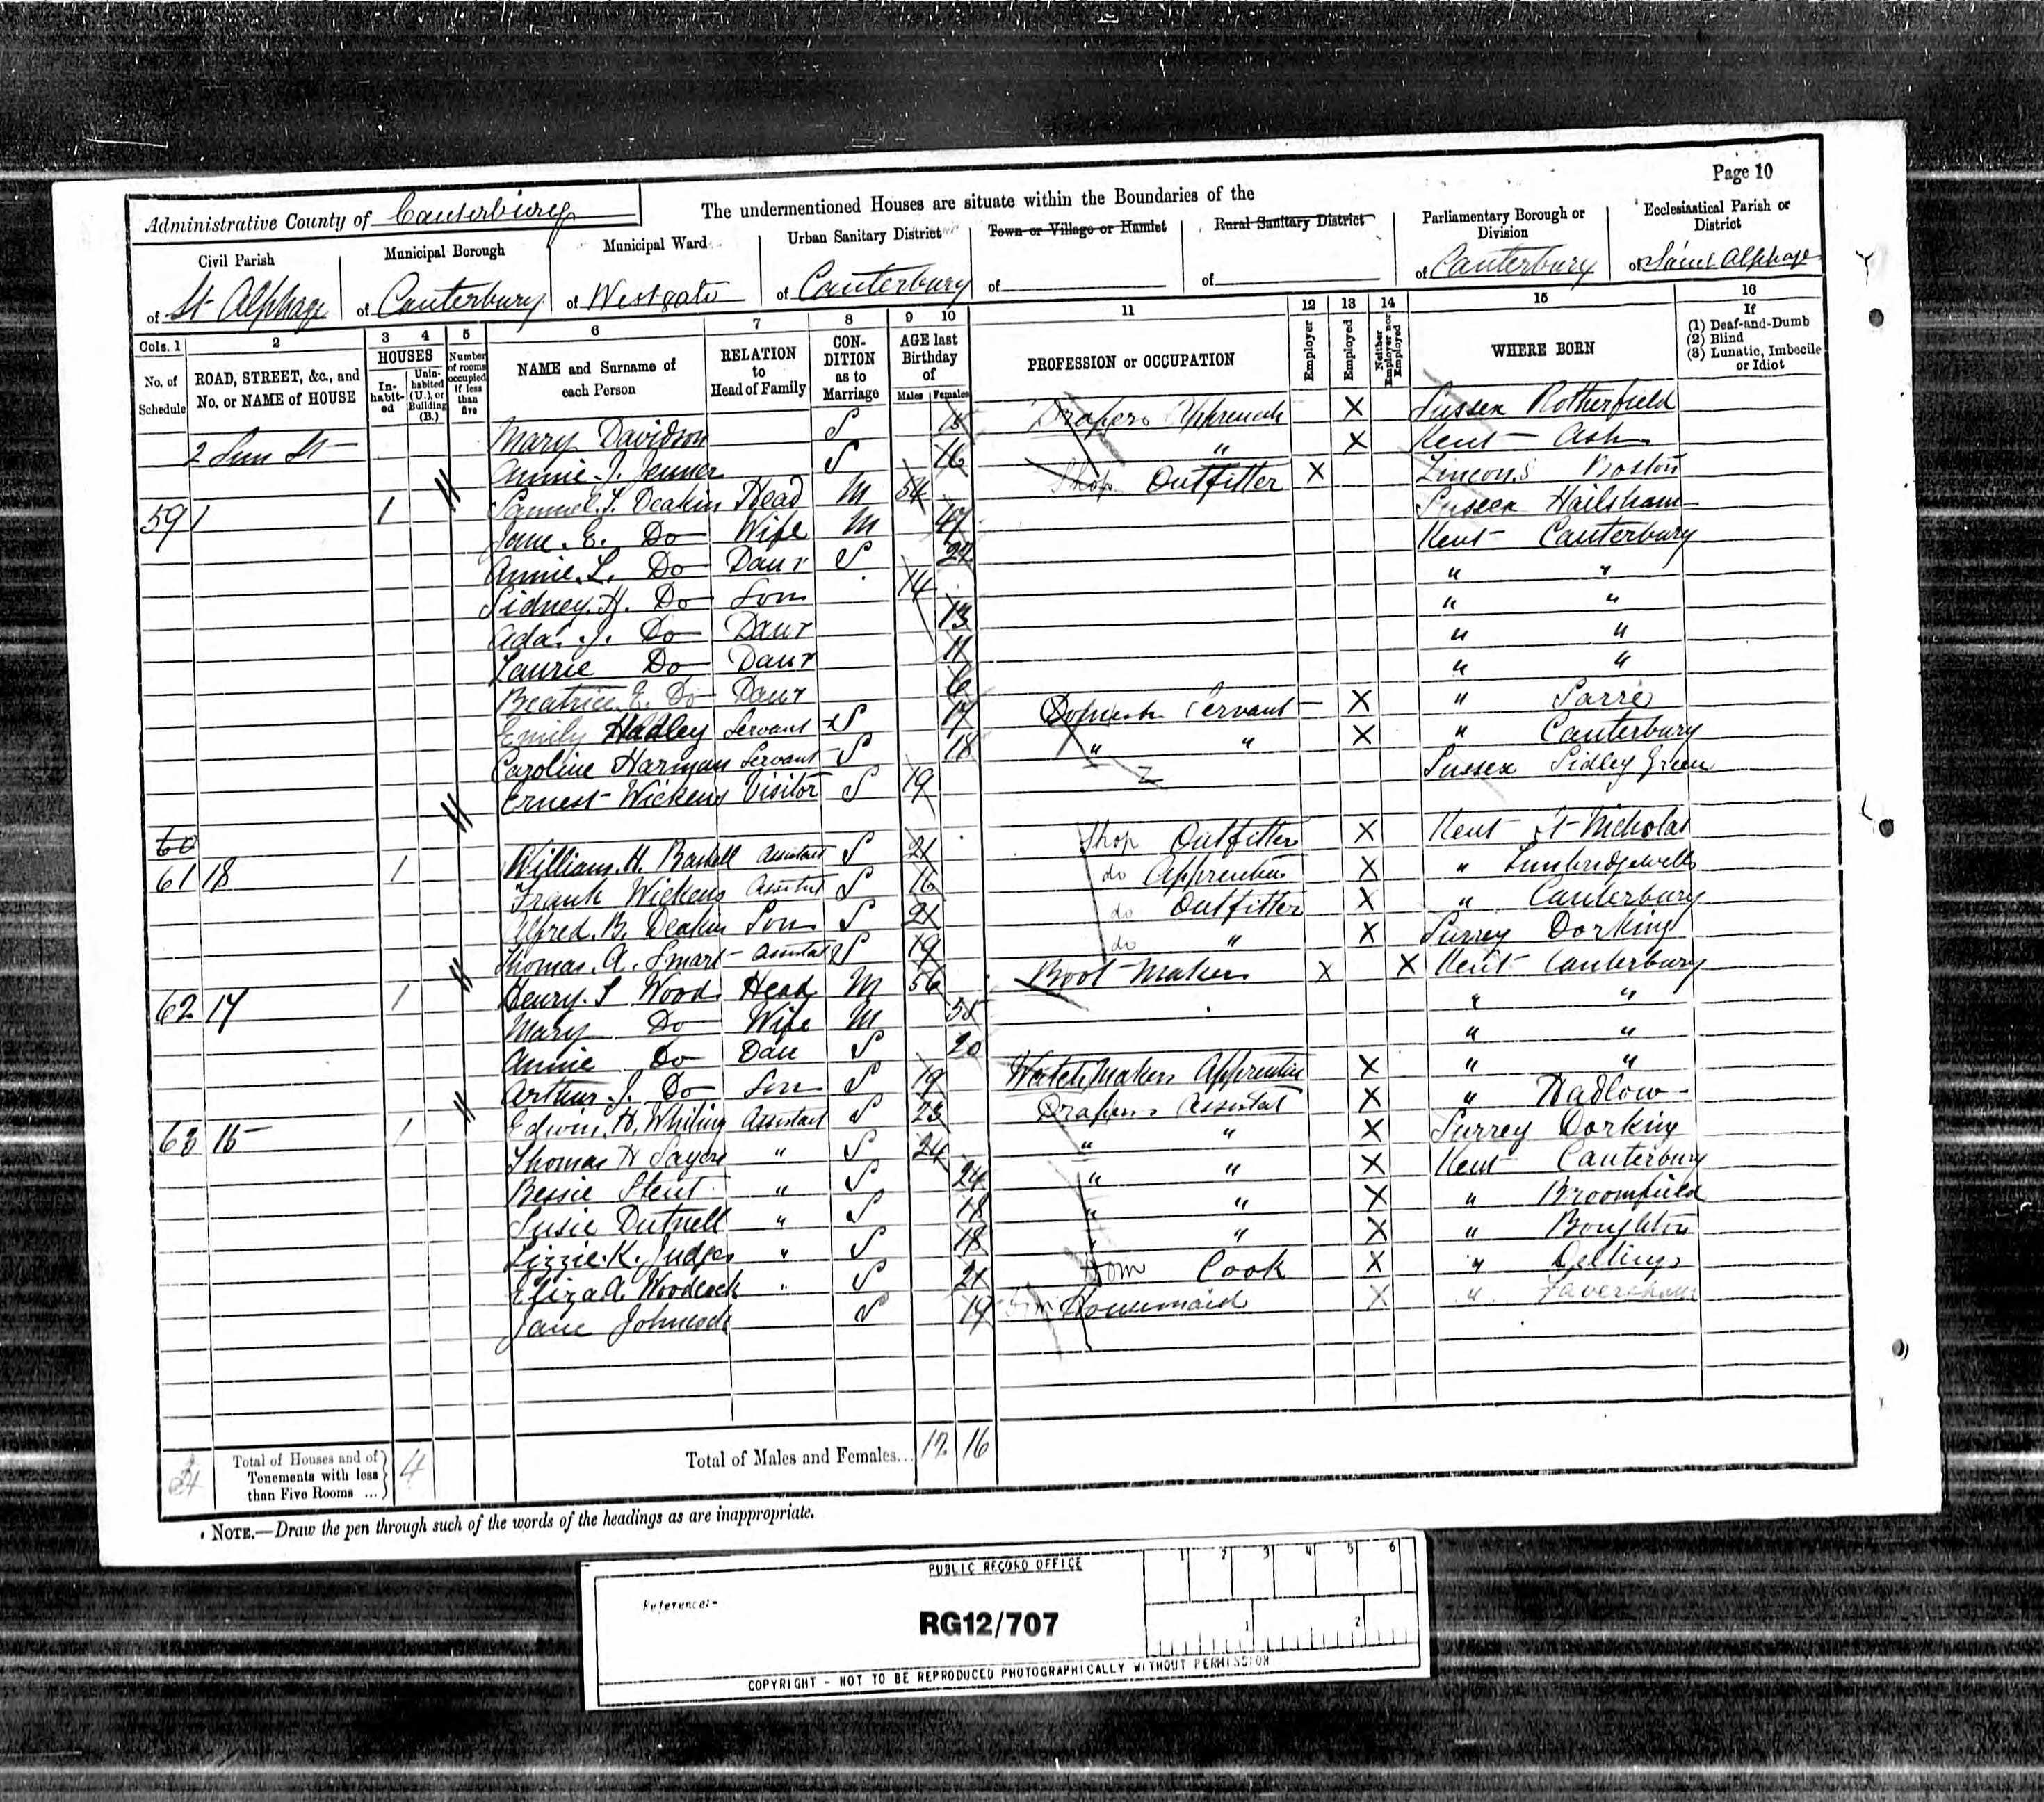 Page 10
Administrative County of Canterbury
The undermentioned Houses are situate within the Boundaries of the
Civil Parish of St Alphage
Municipal Borough of Canterbury
Municipal Ward of Westgate
Urban Sanitary District of Canterbury
Town or Village or Hamlet of
Rural Sanitary District of
Parliamentary Borough or Division of Canterbury
Ecclesiastical Parish or District of Saint Alphage
Cols. 1 2 3 4 5 6 7 8 9 10 11 12 13 14 15 16
No. of Schedule
ROAD, STREET, &c., and No. or NAME of HOUSE
HOUSES
In-habit-ed
Unin-habited (U.), or Building (B.)
Number of rooms occupied if less than five
NAME and Surname of each Person
RELATION to Head of Family
CON-DITION as to Marriage
AGE last Birthday of
Males Females
PROFESSION or OCCUPATION
Employer
Employed
Neither Employer nor Employed
WHERE BORN
If (1) Deaf-and-Dumb (2) Blind (3) Lunatic, Imbecile or Idiot
2 Sun St Mary Davidson S 15 Drapers Apprentice X Sussex Rotherfield
Annie J. Jenner S 16 " X Kent Ash
59 1 1 Samuel J. Deakin Head M 54 Shop Outfitter X Boston
Jane E. Do Wife M 47 Sussex Hailsham
Annie L. Do Daur S 24 Kent Canterbury
Sidney H. Do Son 14 " "
Ada J. Do Daur 13 " "
Laurie Do Daur 11 " "
Beatrice E. Do Daur 6 " "
Emily Hadley Servant S 17 Domestic Servant X " Sarre
Caroline Harman Servant S 18 " " X " Canterbury
Ernest Wickens Visitor S 19 Sussex Sidley Green
60
61 18 1 William H. Assistant S 21 Shop Outfitter X Kent St Nicholas
Frank Wickens Assistant S 16 do Apprentice X " Tunbridgewells
Alfred B. Deakin Son S 21 do Outfitter X " Canterbury
Thomas A. Smart Assistant S 19 do " X Surrey Dorking
62 17 1 Henry S Wood Head M 56 Boot Maker X X Kent Canterbury
Mary Do Wife M 55 " "
Annie Do Dau S 20 " "
Arthur J. Do Son S 19 Watchmakers Apprentice X " "
63 1 Edwin H. Whiting Assistant S 23 Drapers Assistant X " Hadlow
Thomas H Sayers " S 24 " " X Surrey Dorking
Bessie Stent " S 24 " " X Kent Canterbury
Susie Dutnell " S 18 " " X " Broomfield
Lizzie K. Judges " S 18 " " X " Boughton
Eliza A Woodcock " S 21 Dom Cook X " Detling
Jane Johncock S 19 Housemaid X " Faversham
Total of Houses and of Tenements with less than Five Rooms ... 4
Total of Males and Females... 12 16
NOTE.—Draw the pen through such of the words of the headings as are inappropriate.
PUBLIC RECORD OFFICE
1 2 3 4 5 6
Reference:-
RG12/707
1 2
COPYRIGHT - NOT TO BE REPRODUCED PHOTOGRAPHICALLY WITHOUT PERMISSION